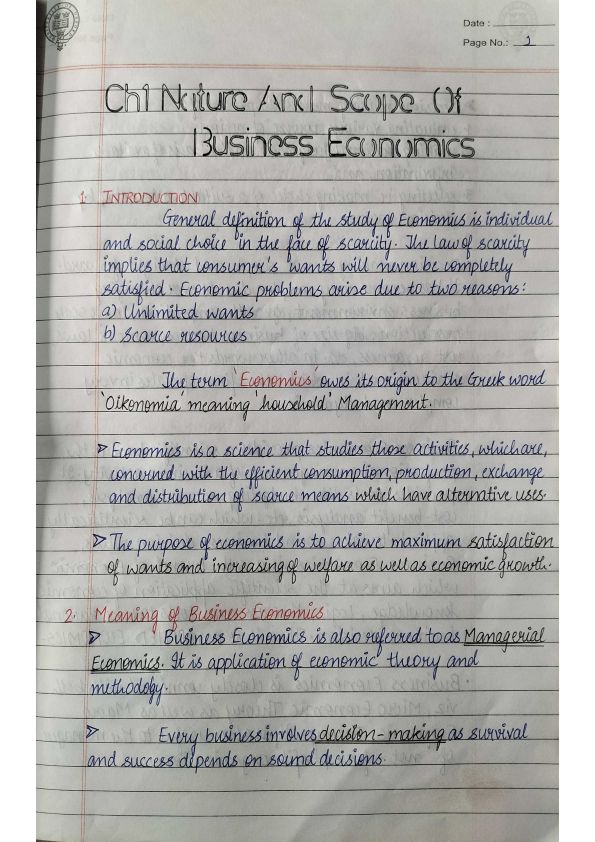 Date :
Page No.: 1
Ch1 Nature And Scope Of
Business Economics
1. INTRODUCTION
General definition of the study of Economics is individual
and social choice in the face of scarcity. The law of scarcity
implies that consumer's wants will never be completely
satisfied. Economic problems arise due to two reasons:
a) Unlimited wants
b) Scarce resources
The term 'Economics' owes its origin to the Greek word
'Oikonomia' meaning 'household' Management.
➢ Economics is a science that studies those activities, which are,
concerned with the efficient consumption, production, exchange
and distribution of scarce means which have alternative uses.
➢ The purpose of economics is to achieve maximum satisfaction
of wants and increasing of welfare as well as economic growth.
2. Meaning of Business Economics
➢ Business Economics is also referred to as Managerial
Economics. It is application of economic theory and
methodolgy.
➢ Every business involves decision-making as survival
and success depends on sound decisions.